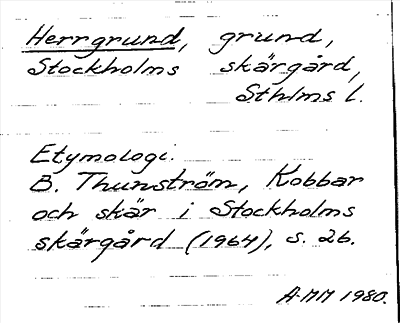 Herrgrund, grund,
Stockholms skärgård,
Sthlms l.
Etymologi.
B. Thunström, Kobbar
och skär i Stockholms
skärgård (1964), s. 26.
A-MM 1980.